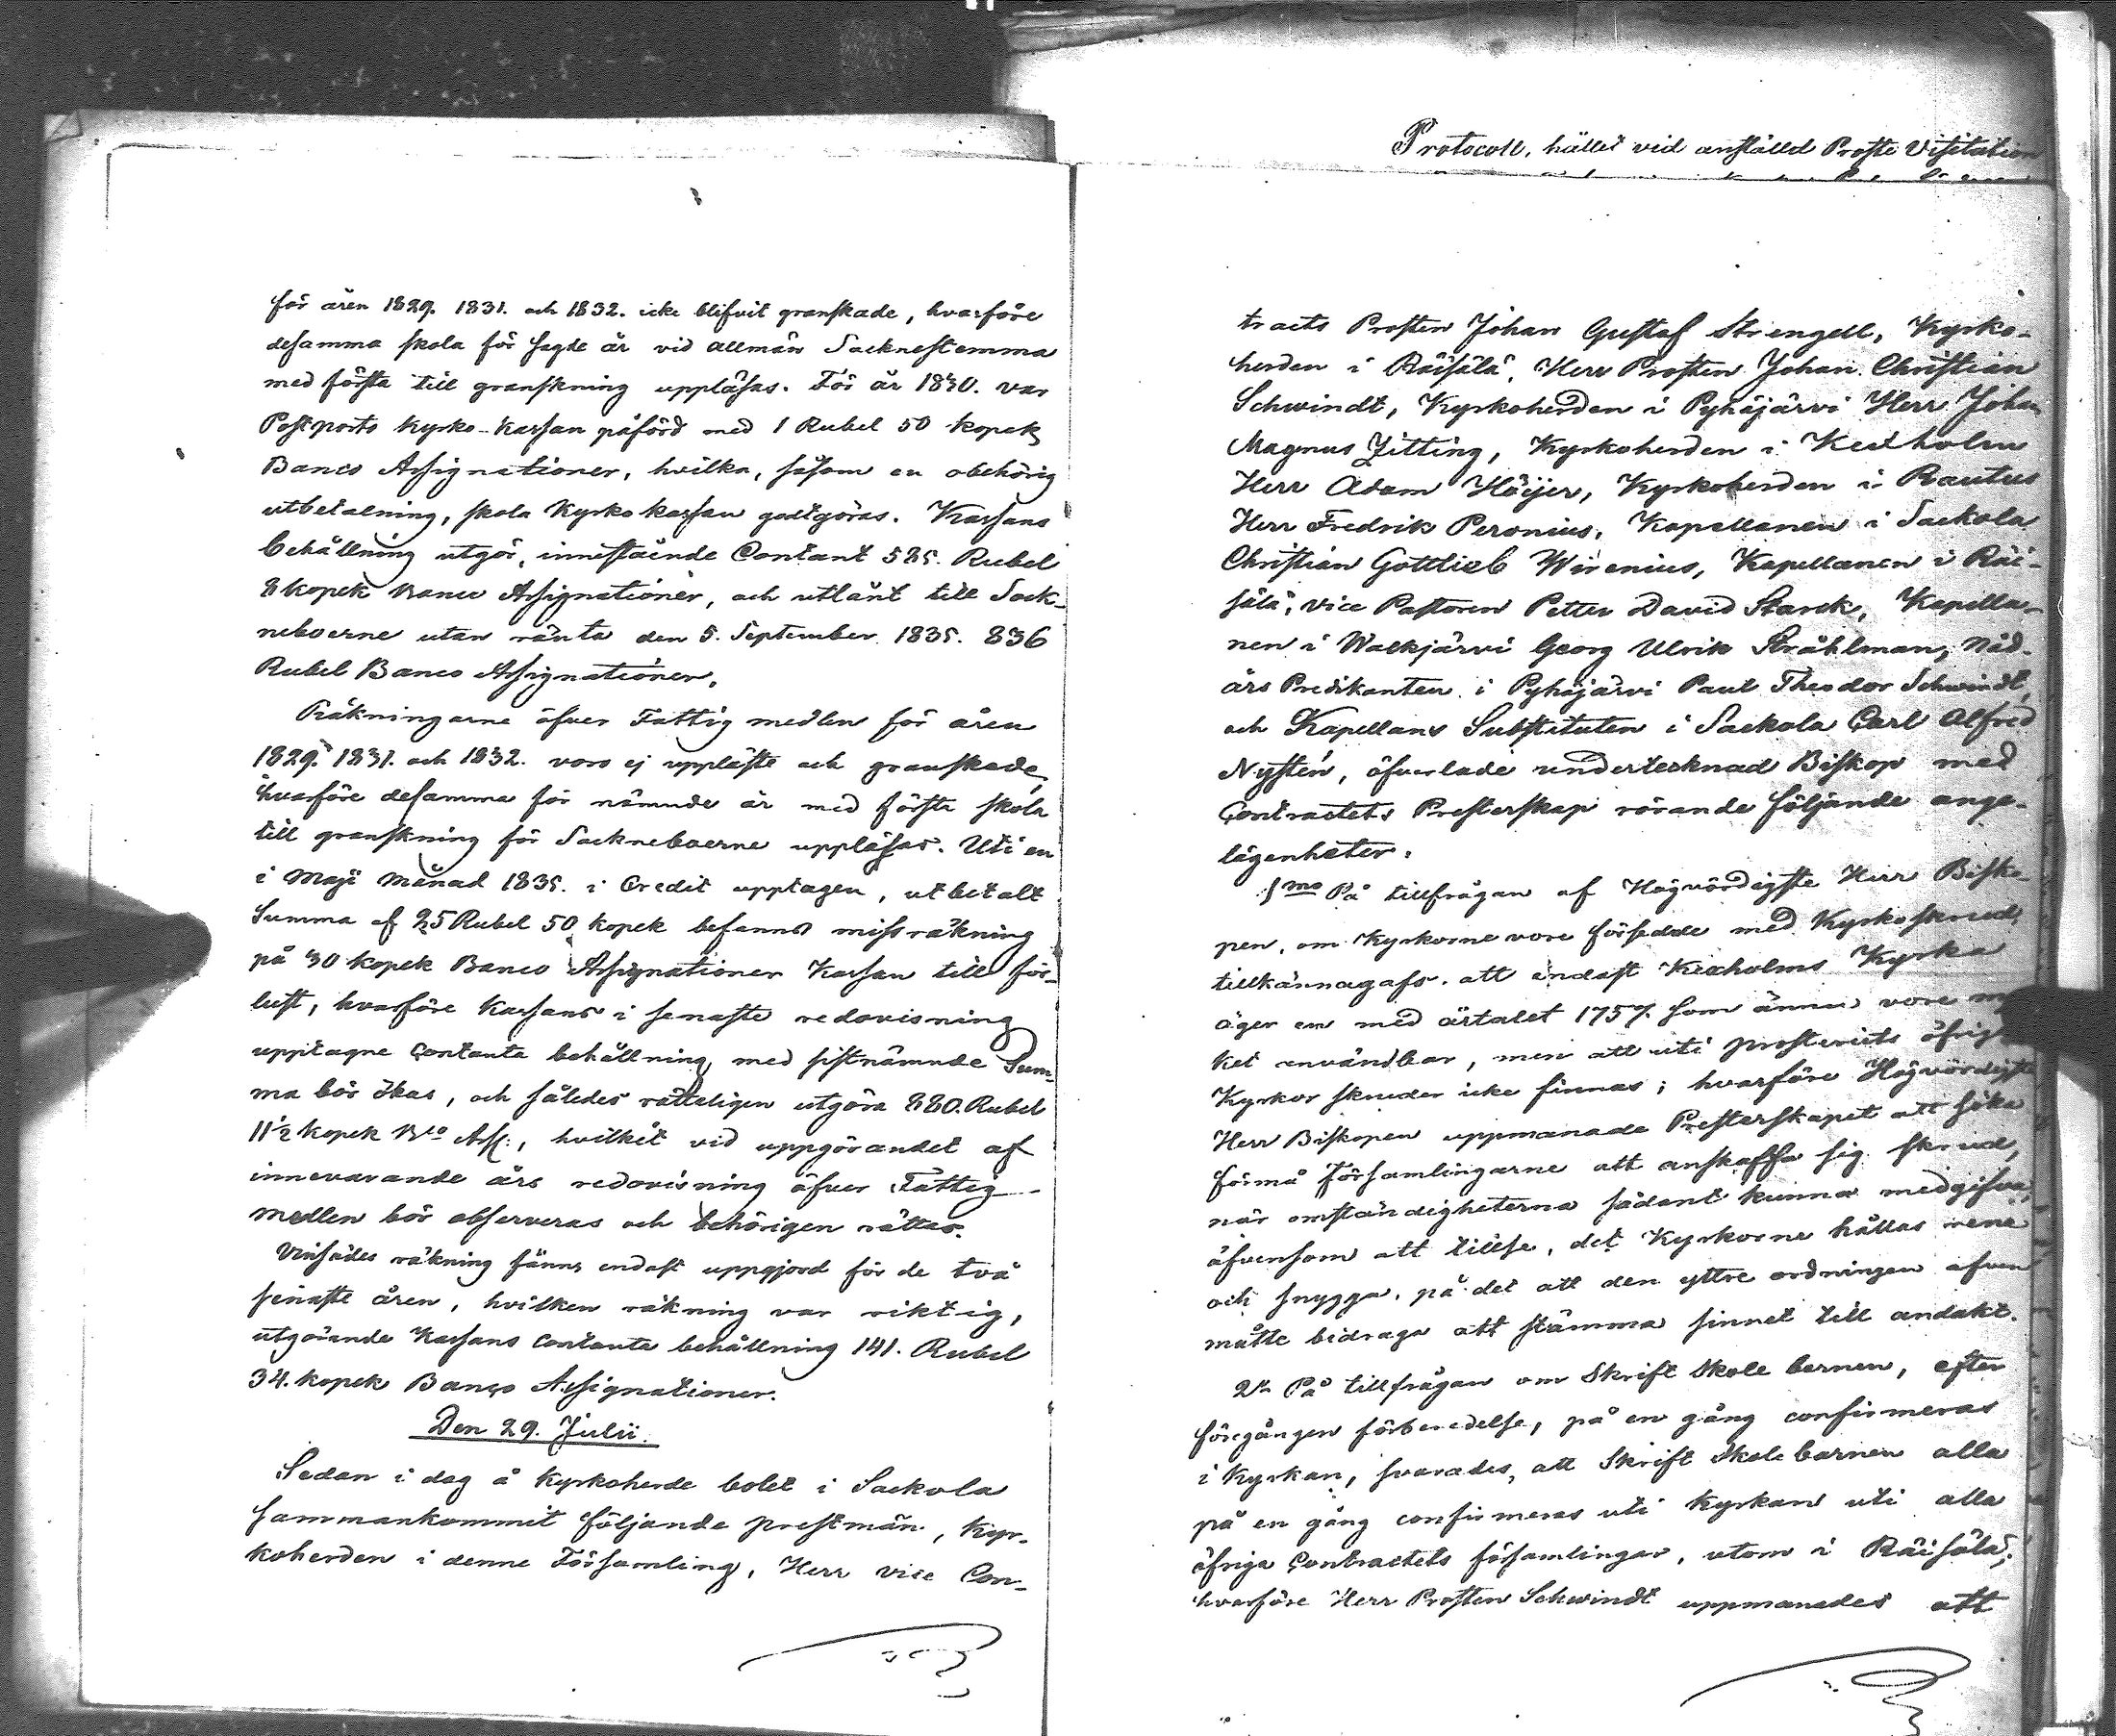 för åren 1829. 1831. och 1832. icke blifvit granskade, hvarföre
desamma skola för sagde år vid allmän Socknestemma
med första till granskning uppläsas. För år 1830. var
Postporto Kyrko-Kassan påförd med 1 Rubel 50 kopek
Banco Assignationer, hvilka, såsom en obehörig
utbetalning, skola Kyrkokassan godtgöras. Kassans
behållning utgör, innestående Contant 525. Rubel
8 kopek Banco Assignationer, och utlånt till Sock-
neboerne utan ränta den 5. September 1835. 836
Rubel Banco Assignationer.
Räkningarne öfver Fattigmedlen för åren
1829. 1831. och 1832. voro ej uppläste och granskade,
hvarföre desamma för nämnde år med första skola
till granskning för Sockneboerne uppläsas. Uti en
i Maji Månad 1835. i Credit upptagen, utbetalt
Summa af 25 Rubel 50 kopek befanns missräkning
på 30 kopek Banco Assignationer Kassan till för-
lust, hvarföre Kassans i senaste redovisning
upptagne Contanta behållning med sistnämnde Sum-
ma bör ökas, och således rätteligen utgöra 220. Rubel
11½ kopek Bco Ass:, hvilket vid uppgörandet af
innevarande års redovisning öfver Fattig-
medlen bör observeras och behörigen rättas.
Vinsädes räkning fanns endast uppgjord för de två
senaste åren, hvilken räkning var riktig,
utgörande Kassans contanta behållning 141. Rubel
34. kopek Banco Assignationer.
Den 29. Julii.
Sedan i dag å Kyrkoherde bolet i Sackola
sammankommit följande prestmän, Kyr-
koherden i denne Församling, Herr vice Con-
Protocoll, hållet vid anställd Proste Visitation
tracts Prosten Johan Gustaf Strengell, Kyrko-
herden i Räisälä, Herr Prosten Johan Christian
Schwindt, Kyrkoherden i Pyhäjärvi Herr Johan
Magnus Zitting, Kyrkoherden i Kexholm
Herr Adam Höijer, Kyrkoherden i Rautus
Herr Fredrik Peronius, Kapellanen i Sackola
Christian Gottlieb Wirenius, Kapellanen i Räi-
sälä, vice Pastoren Petter David Starck, Kapella-
nen i Walkjärvi Georg Ulrik Stråhlman, Nåd-
års Predikanten i Pyhäjärvi Paul Theodor Schwindt,
och Kapellans Substituten i Sackola Carl Alfred
Nystén, öfverlade undertecknad Biskop med
Contractets Presterskap rörande följande ange-
lägenheter:
1mo På tillfrågan af Högvördigste Herr Bisko-
pen, om Kyrkorne vore försedde med Kyrkoskrud,
tillkännagafs, att endast Kexholms Kyrka
äger en med årtalet 1757. som ännu vore myc
ket användbar, men att uti prosteriets öfriga
Kyrkor skruder icke finnas; hvarföre Högvördigste
Herr Biskopen uppmanade Presterskapet att söka
förmå Församlingarne att anskaffa sig skrud,
när omständigheterna sådant kunna medgifva,
äfvensom att tillse, det Kyrkorne hållas rena
och snygga, på det att den yttre ordningen äfven
måtte bidraga att stämma sinnet till andakt.
2o På tillfrågan om Skrift Skole barnen, efter
föregången förberedelse, på en gång confirmeras
i Kyrkan, svarades, att Skrift Skole barnen alla
på en gång confirmeras uti Kyrkan uti alla
öfriga Contractets församlingar, utom i Räisälä;
hvarföre Herr Prosten Schwindt uppmanades att